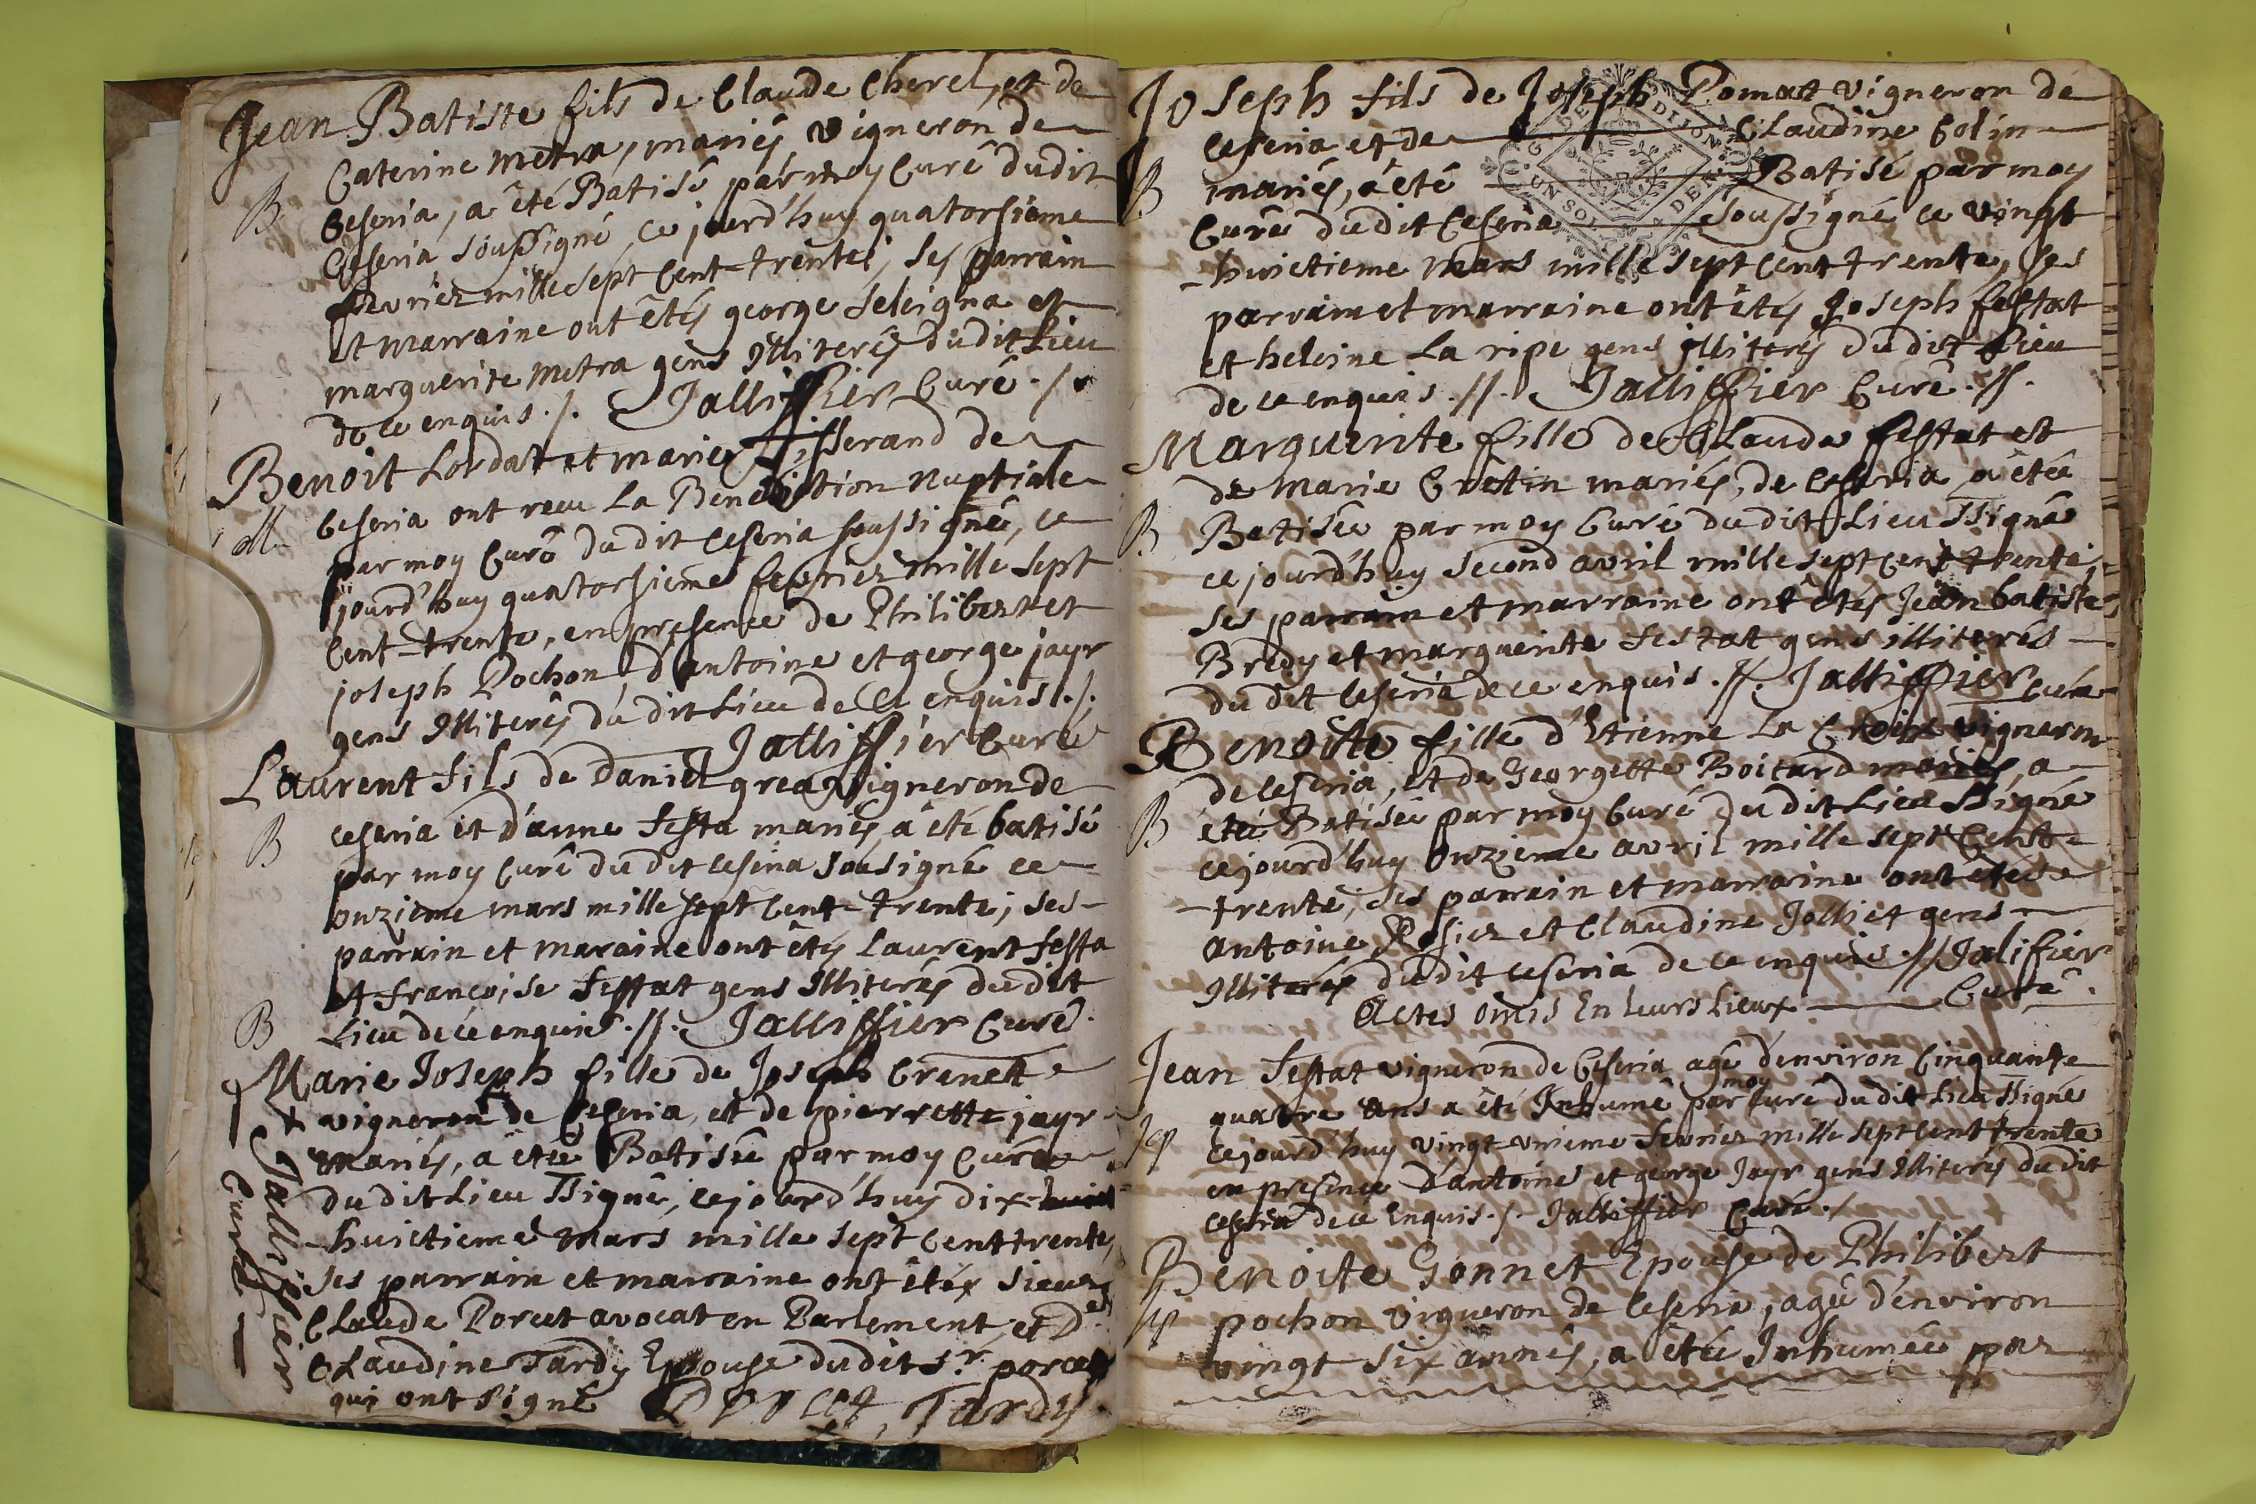 Jean Batiste fils de Claude Cherel, et de
Caterine metra, mariés, vigneron de
B Ceseria, a êté Batisé par moy Curé dudit
Ceseria soussigné, ce jourd'huy quatorsieme
fevrier mille sept cent-trente; ses parrain
et marraine ont êtés george seleigna et
marguerite metra gens Illiterés dudit Lieu
de ce enquis ./. Jalliffier Curé ./.
Benoit Lordat et marie Tisserand de
Ceseria ont receu La Benediction nuptiale
M par moy Curé dudit Ceseria soussigné, ce
jourd'huy quatorsieme fevrier mille sept
Cent-trente, en presence de Philibert et
joseph Pochon d'antoine et george jayr
gens Illiterés dudit Lieu de ce enquis ./.
Jalliffier Curé
Laurent fils de Daniel grea vigneron de
B ceseria et d'anne festa mariés a êté batisé
par moy Curé dudit Ceseria sousigné ce
onzieme mars mille sept cent-trente; ses
parrain et maraine ont êtés Laurent festa
et francoise festat gens Illiterés dudit
Lieu de ce enquis .//. Jalliffier Curé.
B Marie Joseph fille de Joseph Crenet
vigneron de Ceseria, et de pierrette jayr
mariés, a êtée Batisée par moy Curé
dudit Lieu ssigné, ce jourd'huy dix-huict
huictieme mars mille sept cent trente,
ses parrain et marraine ont êtés sieur
Claude Porcet avocat en Parlement, et D.
Claudine Tardy Epouse dudit Sr. porcet
qui ont signé Porcet, Tardy.
+ Jalliffier
Curé
Joseph fils de Joseph Pomat vigneron de
ceseria et de Claudine Colin
B mariés, a êté Batisé par moy
Curé dudit Ceseria soussigné ce vingt
-huictieme mars mille sept cent trente, ses
parrain et marraine ont êtés Joseph festat
et heleine La ripe gens illiterés dudit Lieu
de ce enquis .//. Jalliffier Curé .//.
Marguerite fille de Claude festat et
de Marie Cretin mariés, de Ceseria a êtée
B Batisée par moy Curé dudit Lieu ssigné
ce jourd'huy second avril mille sept cent trente;
ses parrain et marraine ont êtés Jean batiste
Bredy et marguerite festat gens illiterés
dudit Ceseria de ce enquis .//. Jalliffier Curé
Benoite fille d'Etienne La Croix vigneron
de Ceseria, et de Georgette Boitard mariés, a
B êtée Batisée par moy Curé dudit Lieu ssigné
ce jourd'huy onzieme avril mille sept Cent
-trente, ses parrain et marraine ont êtés
antoine Rosier et Claudine Jolliet gens
Illiterés dudit Ceseria de ce enquis .// Jalifier
Actes omis En Leurs Lieux Curé.
Jean festat vigneron de Ceseria agé d'environ Cinquante
quatre ans a êté Inhumé par moy curé dudit Lieu ssigné
ce jourd'huy vingt-unieme fevrier mille sept cent trente
en presence d'antoine et george Jayr gens Illiterés dudit
Ceseria de ce Enquis ./. Jalliffier Curé ./
Benoite Gonnet Epouse de Philibert
pochon vigneron de Ceseria, agée d'environ
vingt six annés, a êtée Inhumée par
G. DE DIJON
UN SOL DE